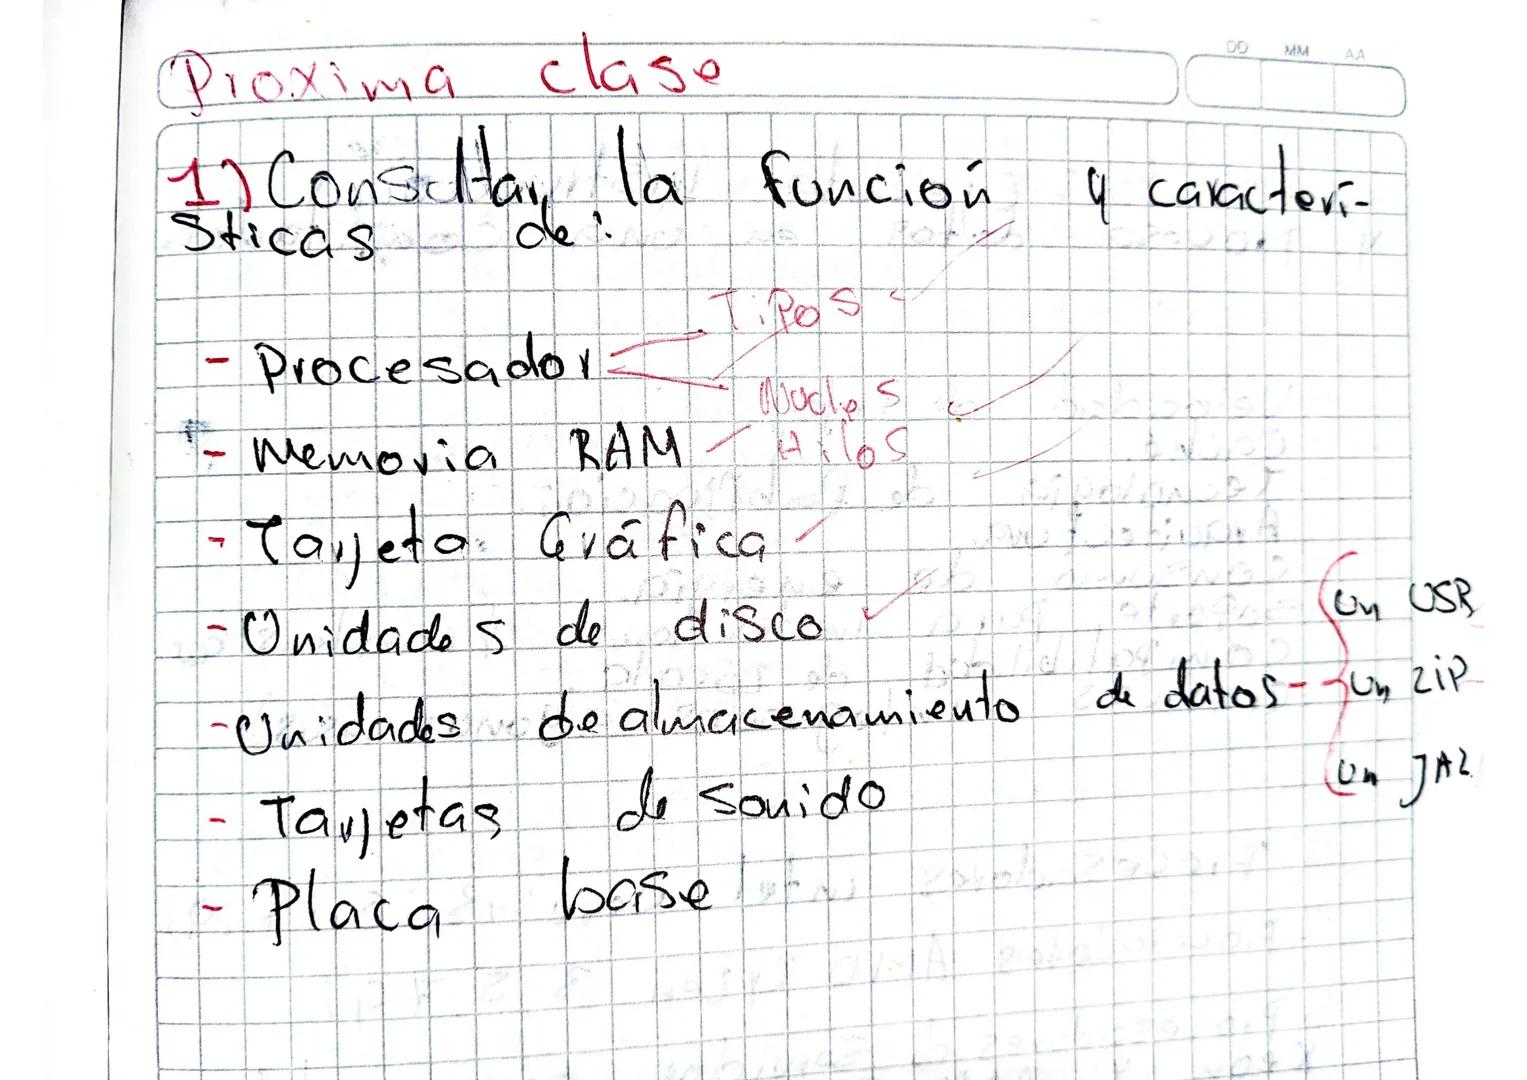 DD MM AA
Proxima clase
1) Consultar la función y caracterí-
sticas de:
Tipos
- Procesador
Nucleos
- Memoria RAM Hilos
- Tarjeta Gráfica
- Unidades de disco
Un USB
- Unidades de almacenamiento de datos - Un ZIP
Un JAZ
- Tarjetas de sonido
- Placa base